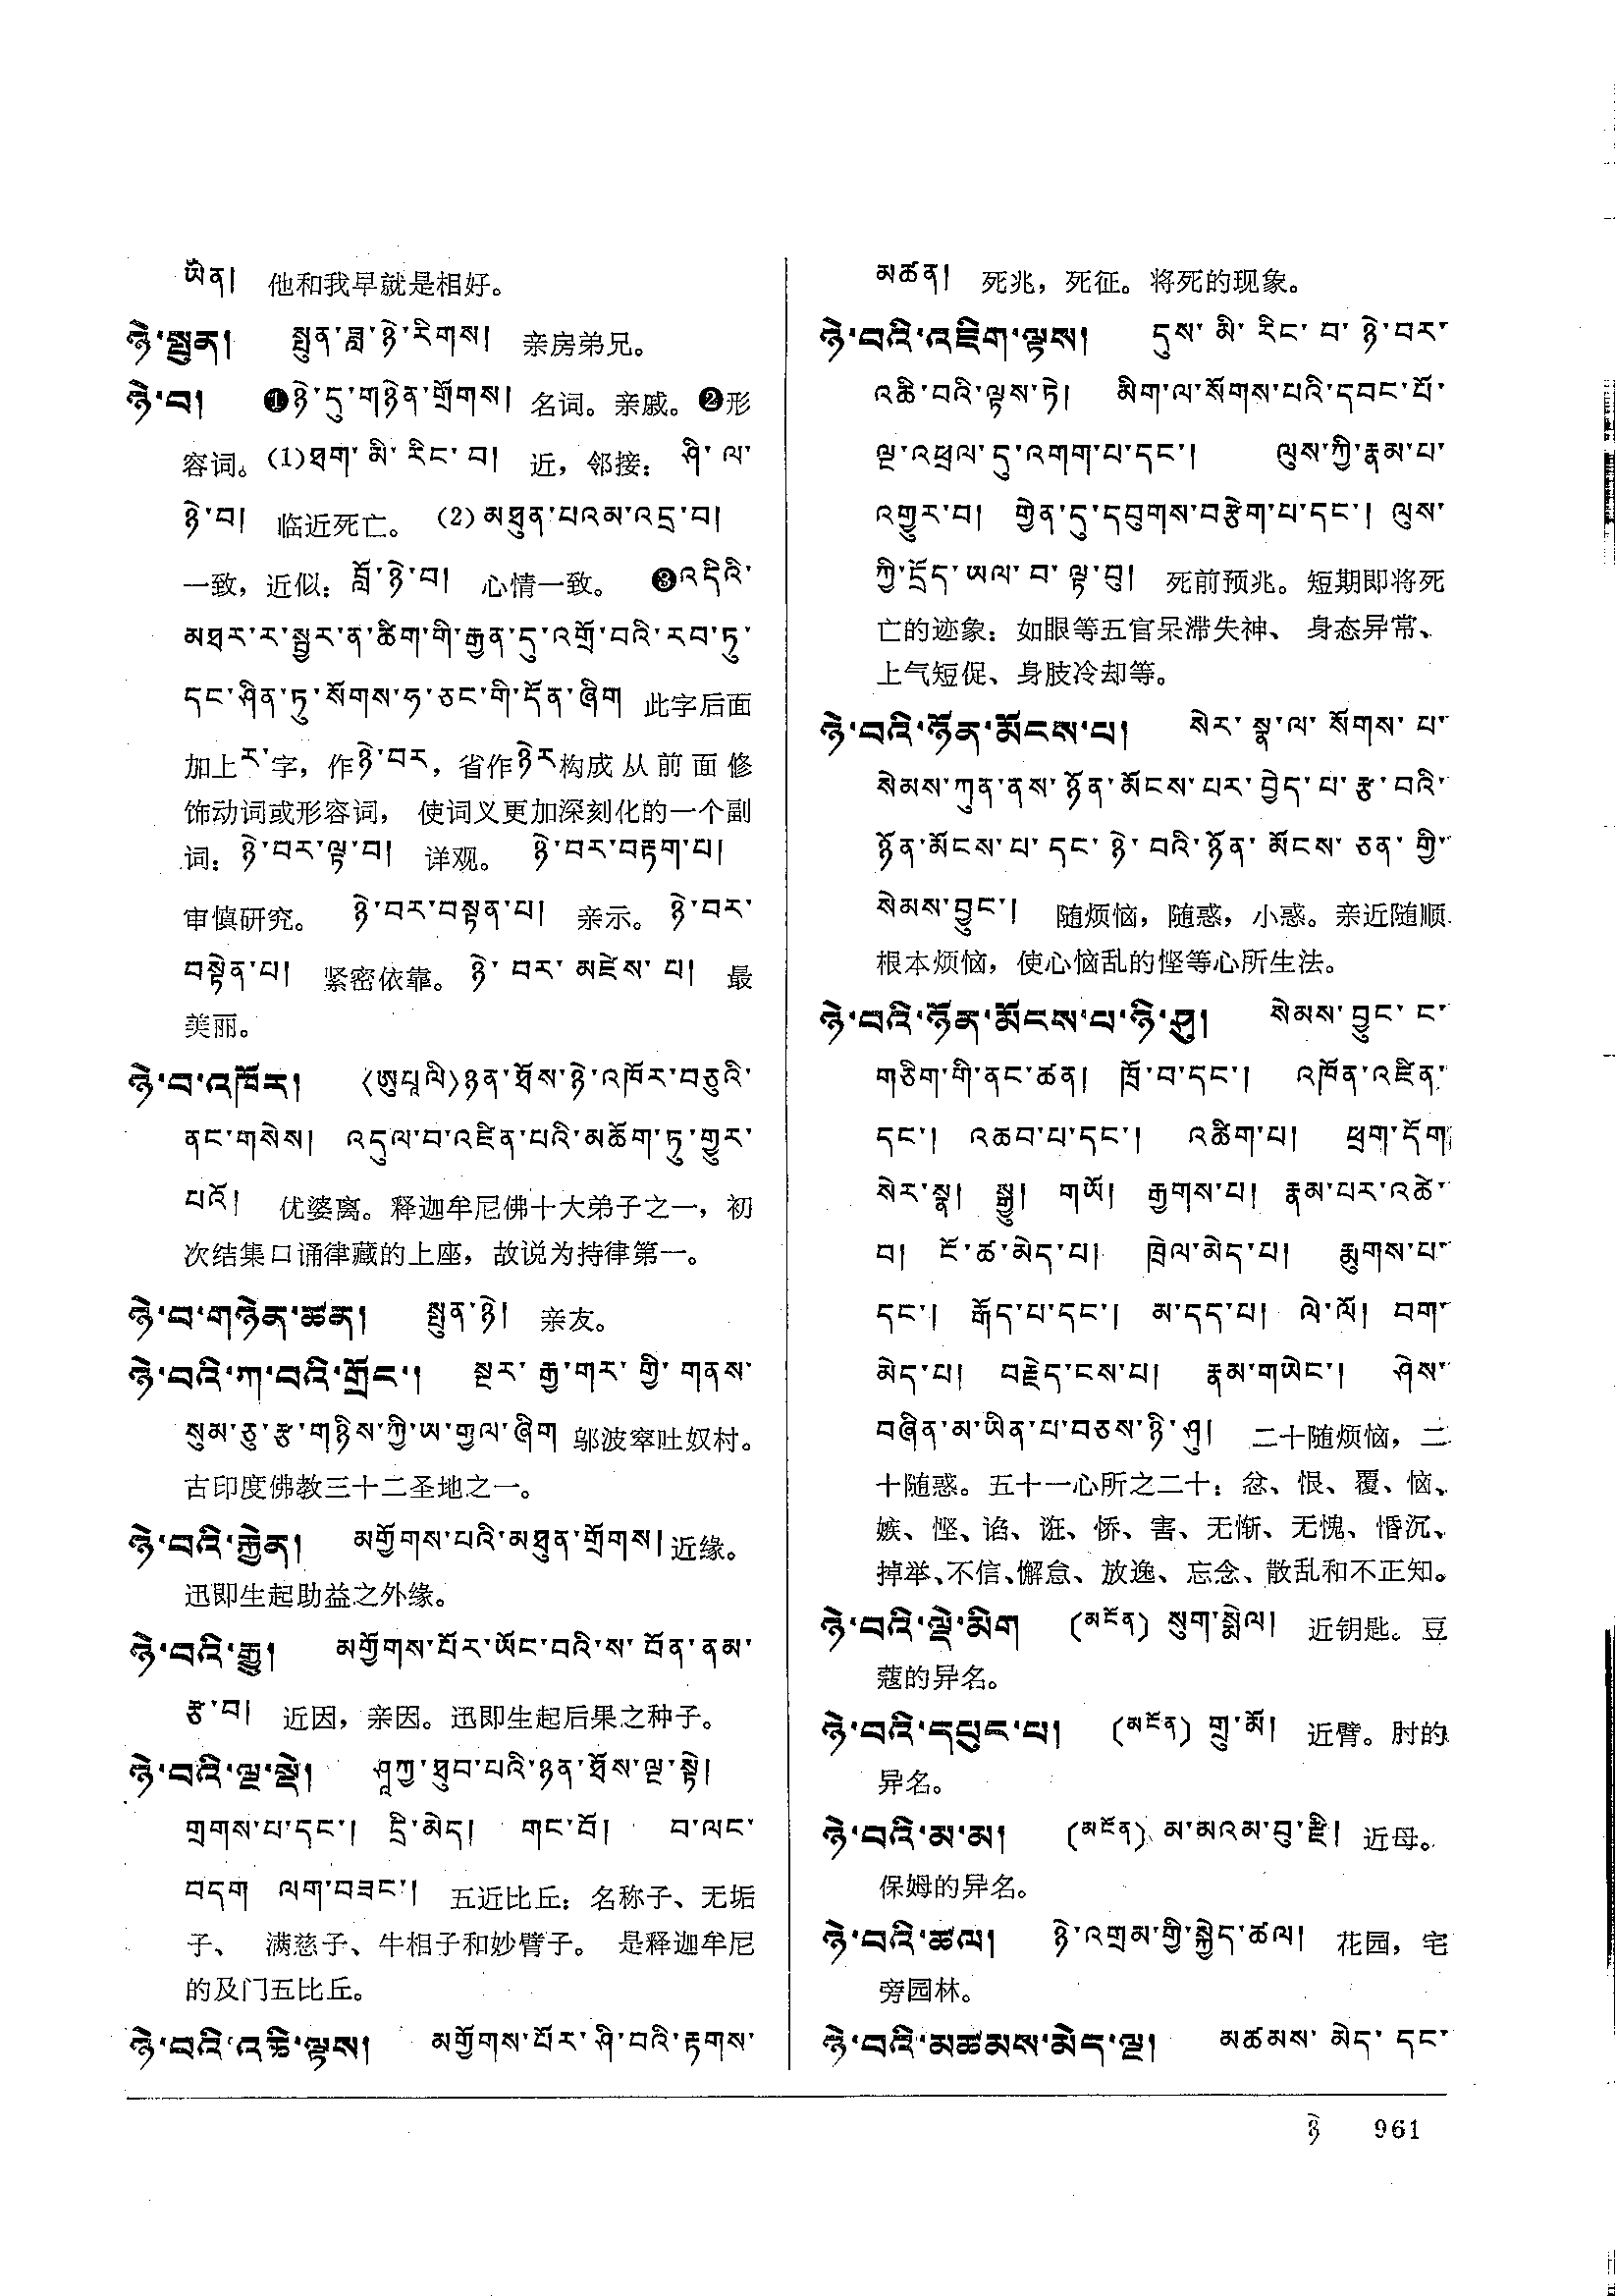 ཡིན། 他和我早就是相好。
ཉེ་སྤུན། སྤུན་ཟླ་ཉེ་རིགས། 亲房弟兄。
ཉེ་བ། ❶ཉེ་དུ་གཉེན་གྲོགས། 名词。亲戚。❷形
容词。(1)ཐག་མི་རིང་བ། 近，邻接：ཤི་ལ་
ཉེ་བ། 临近死亡。(2)མཐུན་པའམ་འདྲ་བ།
一致，近似：བློ་ཉེ་བ། 心情一致。 ❸འདིའི་
མཐར་ར་སྦྱར་ན་ཚིག་གི་རྒྱན་དུ་འགྲོ་བའི་རབ་ཏུ་
དང་ཤིན་ཏུ་སོགས་ཧ་ཅང་གི་དོན་ཞིག 此字后面
加上ར་字，作ཉེ་བར，省作ཉེར构成从前面修
饰动词或形容词，使词义更加深刻化的一个副
词：ཉེ་བར་ལྟ་བ། 详观。 ཉེ་བར་བརྟག་པ།
审慎研究。 ཉེ་བར་བསྟན་པ། 亲示。ཉེ་བར་
བསྟེན་པ། 紧密依靠。ཉེ་བར་མཛེས་པ། 最
美丽。
ཉེ་བ་འཁོར། 〈ཨུཔཱལི〉ཉན་ཐོས་ཉེ་འཁོར་བཅུའི་
ནང་གསེས། འདུལ་བ་འཛིན་པའི་མཆོག་ཏུ་གྱུར་
པའོ། 优婆离。释迦牟尼佛十大弟子之一，初
次结集口诵律藏的上座，故说为持律第一。
ཉེ་བ་གཉེན་ཚན། སྤུན་ཉེ། 亲友。
ཉེ་བའི་ཀ་བའི་གྲོང་། སྔར་རྒྱ་གར་གྱི་གནས་
སུམ་ཅུ་རྩ་གཉིས་ཀྱི་ཡ་གྱལ་ཞིག 邬波窣吐奴村。
古印度佛教三十二圣地之一。
ཉེ་བའི་རྐྱེན། མགྱོགས་པའི་མཐུན་གྲོགས། 近缘。
迅即生起助益之外缘。
ཉེ་བའི་རྒྱུ། མགྱོགས་པོར་ཡོང་བའི་ས་བོན་ནམ་
རྩ་བ། 近因，亲因。迅即生起后果之种子。
ཉེ་བའི་ལྔ་སྡེ། ཤཱཀྱ་ཐུབ་པའི་ཉན་ཐོས་ལྔ་སྟེ།
གྲགས་པ་དང་། དྲི་མེད། གང་པོ། བ་ལང་
བདག ལག་བཟང་། 五近比丘：名称子、无垢
子、满慈子、牛相子和妙臂子。是释迦牟尼
的及门五比丘。
ཉེ་བའི་འཆི་ལྟས། མགྱོགས་པོར་ཤི་བའི་རྟགས་
མཚན། 死兆，死征。将死的现象。
ཉེ་བའི་འཇིག་ལྟས། དུས་མི་རིང་བ་ཉེ་བར་
འཆི་བའི་ལྟས་ཏེ། མིག་ལ་སོགས་པའི་དབང་པོ་
ལྔ་འཕྲལ་དུ་འགག་པ་དང་། ལུས་ཀྱི་རྣམ་པ་
འགྱུར་བ། གྱེན་དུ་དབུགས་བརྩེག་པ་དང་། ལུས་
ཀྱི་དྲོད་ཡལ་བ་ལྟ་བུ། 死前预兆。短期即将死
亡的迹象：如眼等五官呆滞失神、身态异常、
上气短促、身肢冷却等。
ཉེ་བའི་ཉོན་མོངས་པ། སེར་སྣ་ལ་སོགས་པ་
སེམས་ཀུན་ནས་ཉོན་མོངས་པར་བྱེད་པ་རྩ་བའི་
ཉོན་མོངས་པ་དང་ཉེ་བའི་ཉོན་མོངས་ཅན་གྱི་
སེམས་བྱུང་། 随烦恼，随惑，小惑。亲近随顺
根本烦恼，使心恼乱的悭等心所生法。
ཉེ་བའི་ཉོན་མོངས་པ་ཉི་ཤུ། སེམས་བྱུང་ང་
གཅིག་གི་ནང་ཚན། ཁྲོ་བ་དང་། འཁོན་འཛིན་
དང་། འཆབ་པ་དང་། འཚིག་པ། ཕྲག་དོག
སེར་སྣ། སྒྱུ། གཡོ། རྒྱགས་པ། རྣམ་པར་འཚེ་
བ། ངོ་ཚ་མེད་པ། ཁྲེལ་མེད་པ། རྨུགས་པ་
དང་། རྒོད་པ་དང་། མ་དད་པ། ལེ་ལོ། བག་
མེད་པ། བརྗེད་ངས་པ། རྣམ་གཡེང་། ཤེས་
བཞིན་མ་ཡིན་པ་བཅས་ཉི་ཤུ། 二十随烦恼，二
十随惑。五十一心所之二十：忿、恨、覆、恼、
嫉、悭、谄、诳、㤭、害、无惭、无愧、惛沉、
掉举、不信、懈怠、放逸、忘念、散乱和不正知。
ཉེ་བའི་ལྡེ་མིག (མངོན) སུག་སྨེལ། 近钥匙。豆
蔻的异名。
ཉེ་བའི་དཔུང་པ། (མངོན) གྲུ་མོ། 近臂。肘的
异名。
ཉེ་བའི་མ་མ། (མངོན) མ་མའམ་བུ་རྫི། 近母。
保姆的异名。
ཉེ་བའི་ཚལ། ཉེ་འགྲམ་གྱི་སྐྱེད་ཚལ། 花园，宅
旁园林。
ཉེ་བའི་མཚམས་མེད་ལྔ། མཚམས་མེད་དང་
ཉེ 961